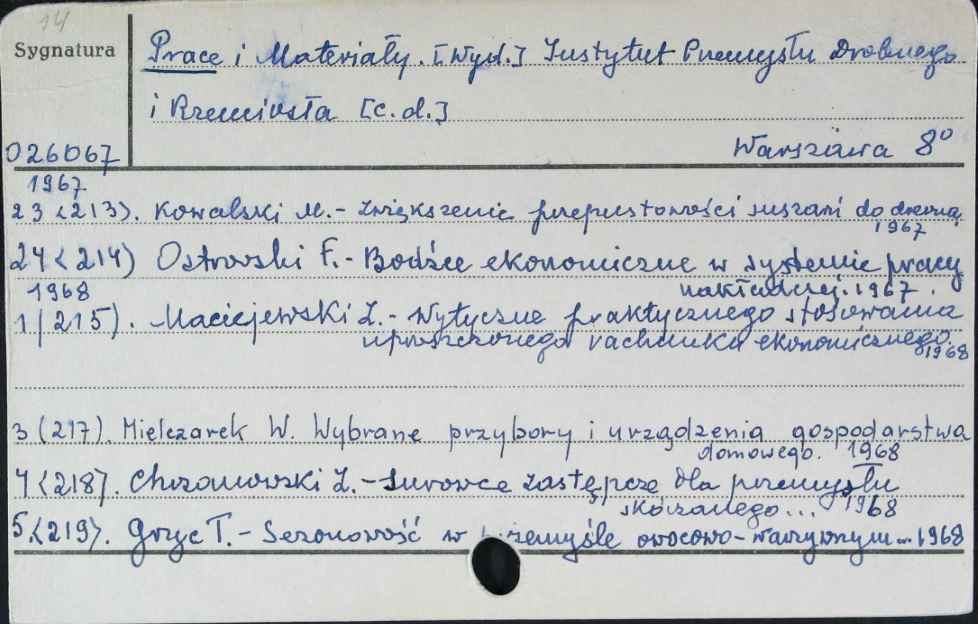 14
Sygnatura
Prace i Materiały. [Wyd.] Instytut Przemysłu Drobnego
i Rzemiosła [c.d.]
026067
Warszawa 8°
1967
23 (213). Kowalski M. - Zwiększenie przepustowości suszarni do drewna.
1967
24 (214) Ostrowski F. - Bodźce ekonomiczne w systemie pracy
nakładczej. 1967.
1968
1 (215). Maciejewski Z. - Wytyczne praktycznego stosowania
uproszczonego rachunku ekonomicznego.
1968
3 (217). Mielczarek W. Wybrane przybory i urządzenia gospodarstwa
domowego. 1968
4 (218). Chrzanowski Z. - Surowce zastępcze dla przemysłu
skórzanego... 1968
5. (219). Goryc T. - Sezonowość w przemyśle owocowo-warzywnym... 1968